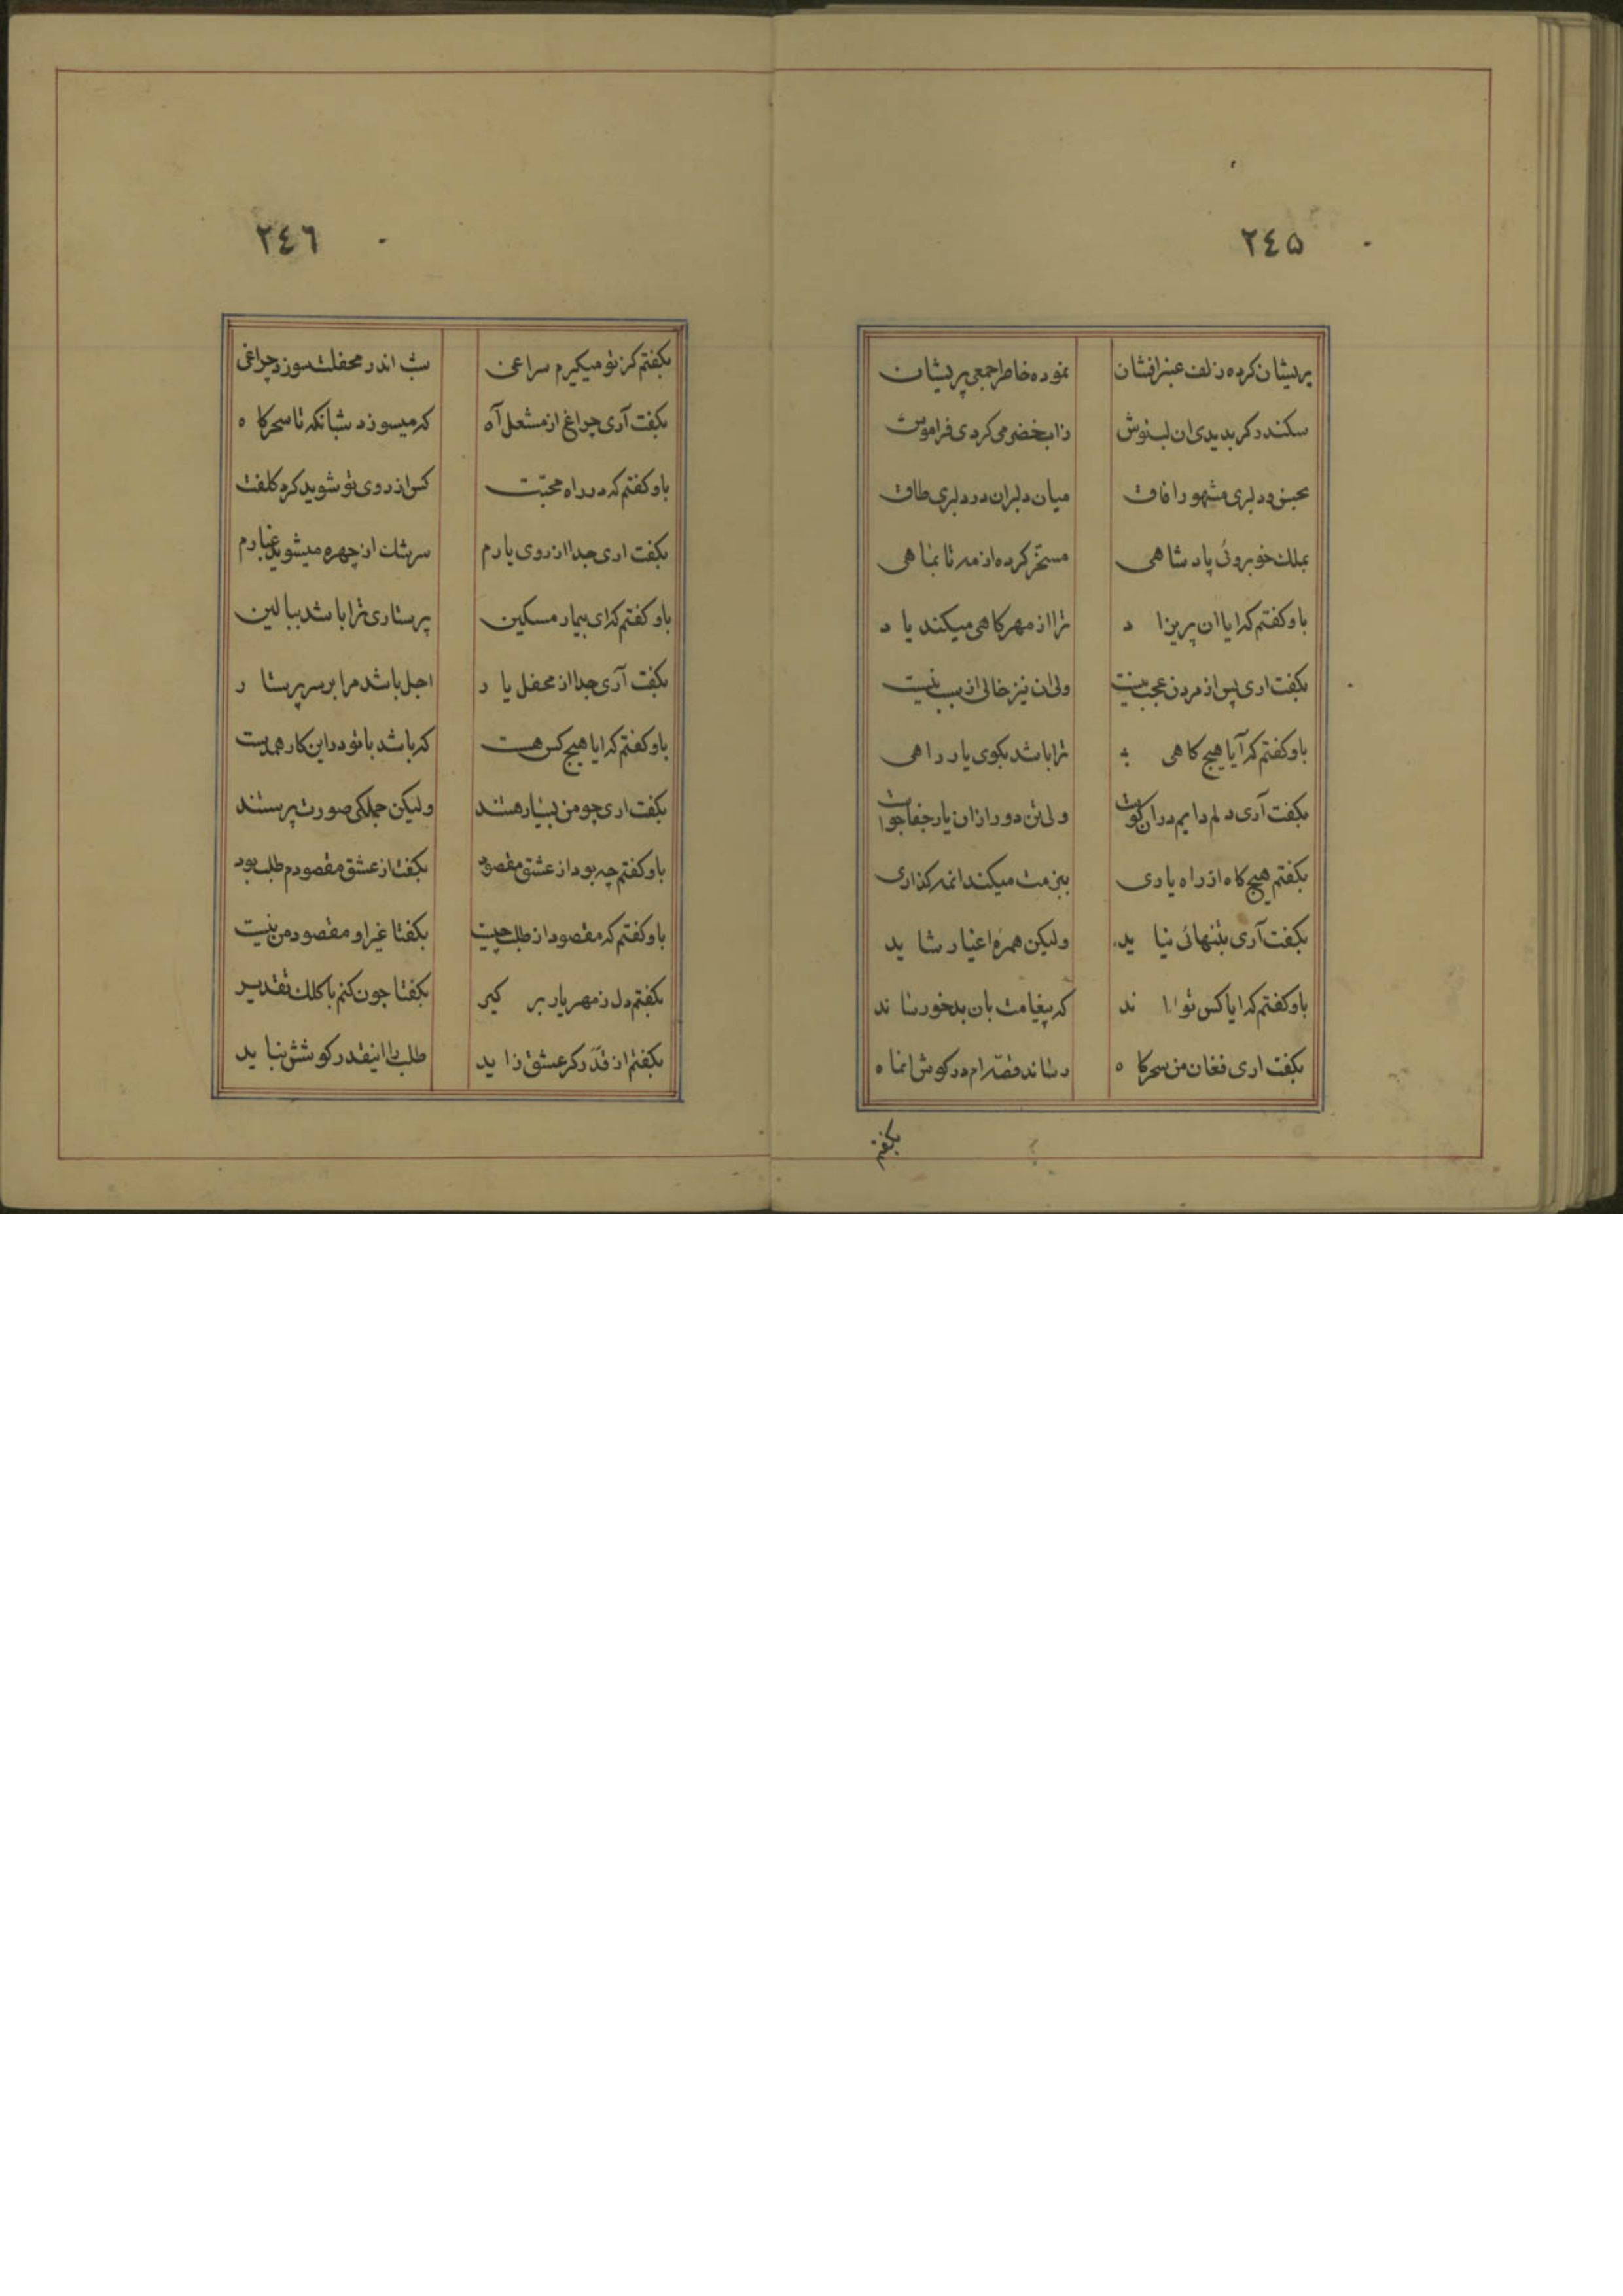 ۲٤۵
پریشان کرده زلف عنبرافشان
نموده خاطر جمعی پریشان
سکندر کر بدیدی ان لب نوش
ز اب خضر می کردی فراموش
بحسن و دلبری مشهور افاق
میان دلبران در دلبری طاق
بملک خوبروئی پادشاهی
مسخر کرده از مه تا بماهی
باو کفتم که ایا ان پریزاد
ترا از مهر کاهی میکند یاد
بکفت اری پس از مردن عجب نیست
ولی ان نیز خالی از سبب نیست
باو کفتم که آیا هیچ کاهی
ترا باشد بکوی یار راهی
بکفت آری دلم دایم در ان کوست
ولی تن دور از ان یار جفاجوست
بکفتم هیچ کاه از راه یاری
ببزمت میکند انمه کذاری
بکفت آری بتنهائی نیاید
ولیکن همره اغیار شاید
باو کفتم که ایا کس تواند
که پیغامت بان بدخو رساند
بکفت اری فغان من سحرکاه
رساند قصه ام در کوش انماه
بکفتم
۲٤٦
بکفتم کز تو میکیرم سراغی
شب اندر محفلت سوزد چراغی
بکفت آری چراغ از مشعل آه
که میسوزد شبانکه تا سحرکاه
باو کفتم که در راه محبت
کس از روی تو شوید کرد کلفت
بکفت اری جدا از روی یارم
سرشک از چهره میشوید غبارم
باو کفتم که ای بیمار مسکین
پرستاری ترا باشد ببالین
بکفت آری جدا از محفل یار
اجل باشد مرا بر سر پرستار
باو کفتم که ایا هیچ کس هست
که باشد با تو در این کار همدست
بکفت اری چو من بسیار هستند
ولیکن جملکی صورت پرستند
باو کفتم چه بود از عشق مقصود
بکفت از عشق مقصودم طلب بود
باو کفتم که مقصود از طلب چیست
بکفتا غیر او مقصود من نیست
بکفتم دل ز مهر یار بر کیر
بکفتا چون کنم با کلک تقدیر
بکفتم از قدر کر عشق زاید
طلب را اینقدر کوشش نباید